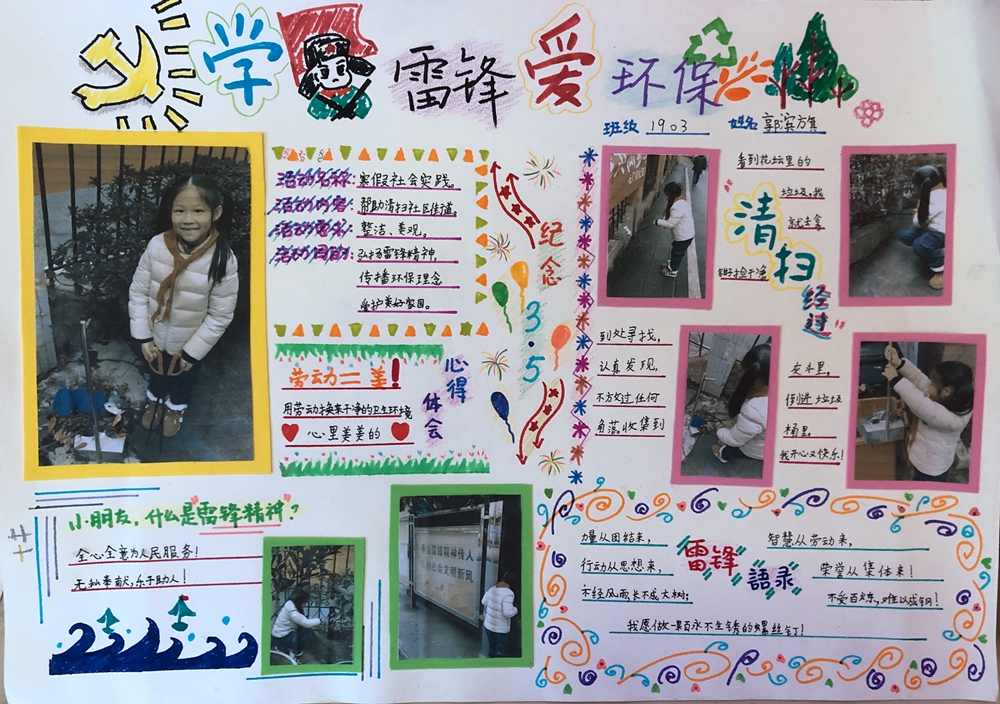 学雷锋爱环保
班级 1903 姓名 郭滨方箕
活动名称：寒假社会实践。
活动内容：帮助清扫社区街道。
活动要求：整洁、美观。
活动目的：弘扬雷锋精神，
传播环保理念
爱护美好家园。
纪念3.5
劳动=美！
用劳动换来干净的卫生环境
心里美美的
心得体会
看到花坛里的
垃圾，我
就去拿
钳子捡干净
"清扫经过"
到处寻找，
认真发现，
不放过任何
角落。收集到
灰斗里，
倒进垃圾
桶里，
我开心又快乐！
小朋友，什么是"雷锋精神"？
全心全意为人民服务！
无私奉献，乐于助人！
争做雷锋精神传人
社会文明新风
"雷锋"語录"
力量从团结来，
智慧从劳动来，
行动从思想来，
荣誉从集体来！
不经风雨，长不成大树；
不受百炼，难以成钢！
我愿做一颗永不生锈的螺丝钉！